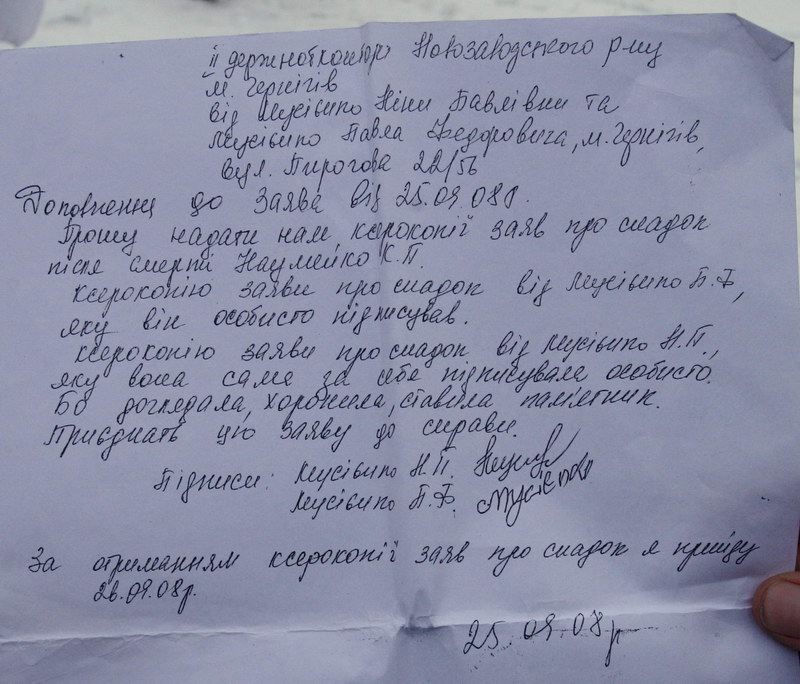 ІІ держнотконтор Новозаводського р-ну
м. Чернігів
від Мусієнко Ніни Павлівни та
Мусієнко Павла Федоровича, м. Чернігів,
вул. Пирогова 22/56
Доповнення до Заява від 25.09.08р.
Прошу надати нам, ксерокопії заяв про спадок
після смерті Науменко К.П.
ксерокопію заяви про спадок від Мусієнко П.Ф,
яку він особисто підписував.
ксерокопію заяви про спадок від Мусієнко Н.П.,
яку вона сама за себе підписувала особисто.
Бо доглядала, хоронила, ставила пам'ятник.
Приєднать цю заяву до справи.
Підписи: Мусієнко Н.П.
Мусієнко П.Ф. Мусієнко
За отриманням ксерокопії заяв про спадок я прийду
26.09.08р.
25.09.08р